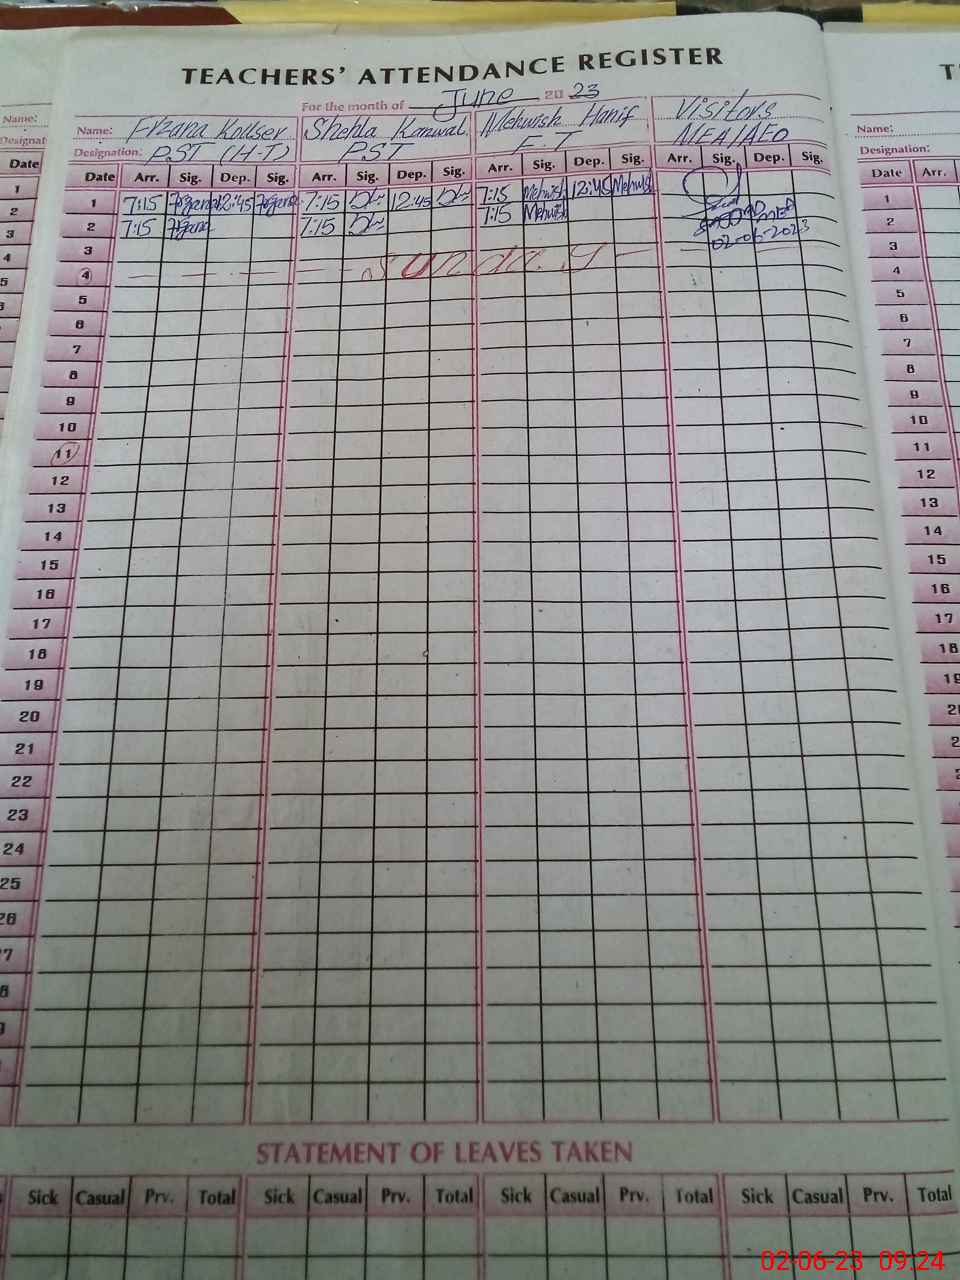 TEACHERS' ATTENDANCE REGISTER
For the month of June 20 23
Name: Frzana Kouser Shehla Konwal Mehwish Hanif Visitors
Designation: PST (H-T) PST E.T MEA/AEO
Date Arr. Sig. Dep. Sig. Arr. Sig. Dep. Sig. Arr. Sig. Dep. Sig. Arr. Sig. Dep. Sig.
1 7:15 Frzana 12:45 Frzana 7:15 12:45 7:15 Mehwish 12:45 Mehwish
2 7:15 Frzana 7:15 7:15 Mehwish
MEA
02-06-2023
3
4 Sunday
5
6
7
8
9
10
11
12
13
14
15
16
17
18
19
20
21
22
23
24
25
26
STATEMENT OF LEAVES TAKEN
Sick Casual Prv. Total Sick Casual Prv. Total Sick Casual Prv. Total Sick Casual Prv. Total
Name:
Designation:
Date Arr.
1
2
3
4
5
6
7
8
9
10
11
12
13
14
15
16
17
18
Name:
Date
1
2
3
4
02-06-23 09:24